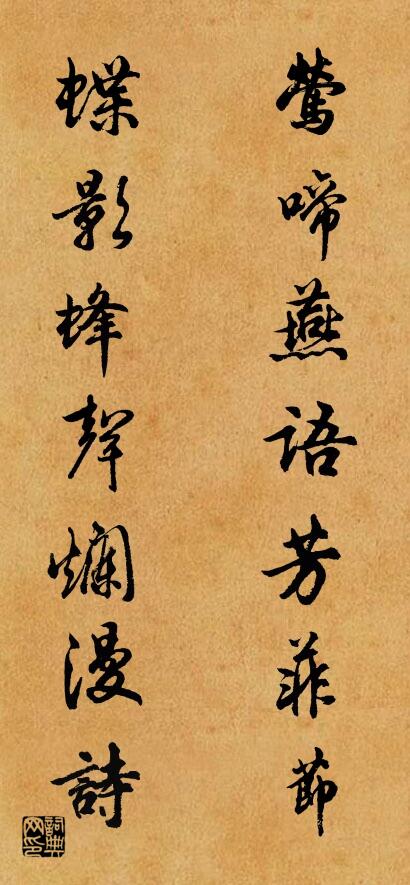 鶯啼燕語芳菲節
蝶影蜂聲爛漫詩
詞典网印